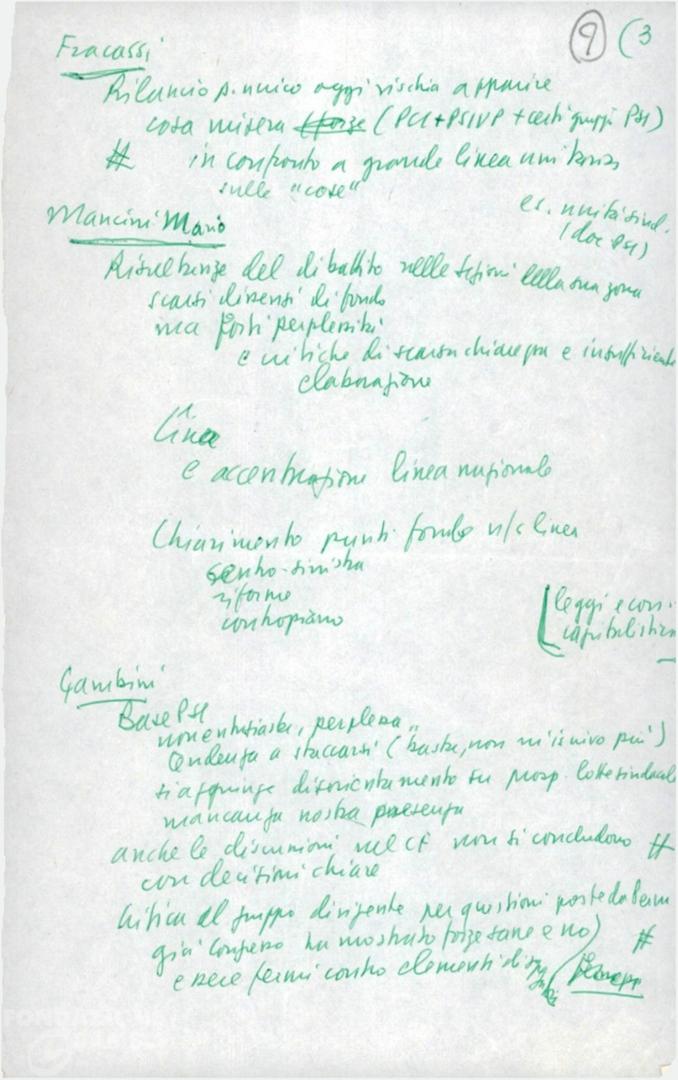 9 (3
Fracassi
Rilancio p. unico oggi rischia apparire
cosa misera (PCI+PSIUP + certi gruppi PSI)
# in confronto a grande linea unitaria
sulle "cose"
es. unità sind.
(doc PSI)
Mancini Mario
Risultanze del dibattito nelle sezioni della sua zona
scarsi dissensi di fondo
ma forti perplessità
e critiche di scarsa chiarezza e insufficiente
elaborazione
linea
e accentuazione linea nazionale
Chiarimento punti fondo n/s linea
centro-sinistra
riforme
contropiano
leggi econ.
capitalistica
Gambini
Base PSI
non entusiasta, perplessa
tendenza a staccarsi (basta, non m'iscrivo più)
si aggiunge disorientamento su prosp. lotte sindacali
mancanza nostra presenza
anche le discussioni nel CF non si concludono #
con decisioni chiare
Critica al gruppo dirigente per questioni poste da
già congresso ha mostrato forze sane e no) #
essere fermi contro elementi